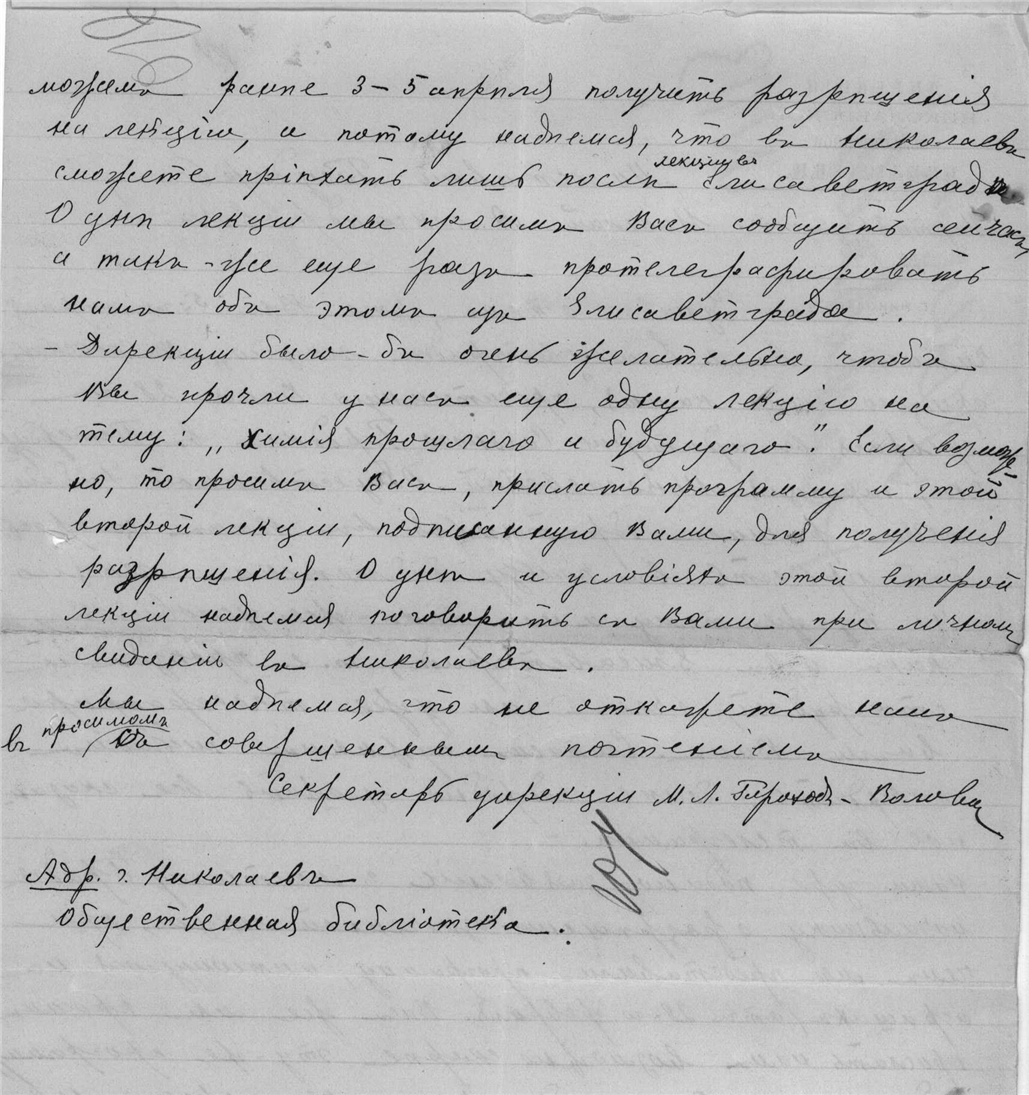 можемъ ранѣе 3–5 апрѣля получить разрѣшенія
на лекцію, а потому надѣемся, что въ Николаевъ
лекціи въ
сможете пріѣхать лишь послѣ Елисаветградѣ
О днѣ лекціи мы просимъ Васъ сообщить сейчасъ,
а такъ-же еще разъ протелеграфировать
намъ объ этомъ изъ Елисаветграда.
– Дирекціи было-бы очень желательно, чтобъ
Вы прочли у насъ еще одну лекцію на
тему: „Химія прошлаго и будущаго." Если возмож
но, то просимъ Васъ, прислать программу и этой
второй лекціи, подписанную Вами, для полученія
разрѣшенія. О днѣ и условіяхъ этой второй
лекціи надѣемся поговорить съ Вами при личномъ
свиданіи въ Николаевѣ.
Мы надѣемся, что не откажете намъ
въ просимомъ
Съ совершеннымъ почтеніемъ
Секретарь дирекціи М. Л.
Адр. г. Николаевъ
Общественная библіотека.